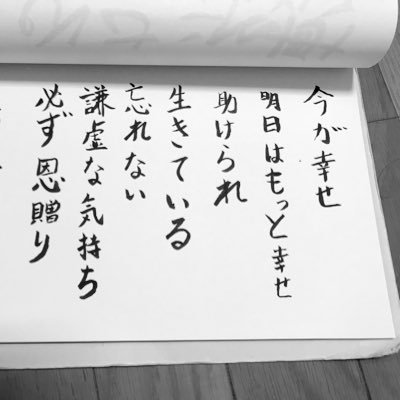 今が幸せ
明日はもっと幸せ
助けられ
生きている
忘れない
謙虚な気持ち
必ず恩贈り